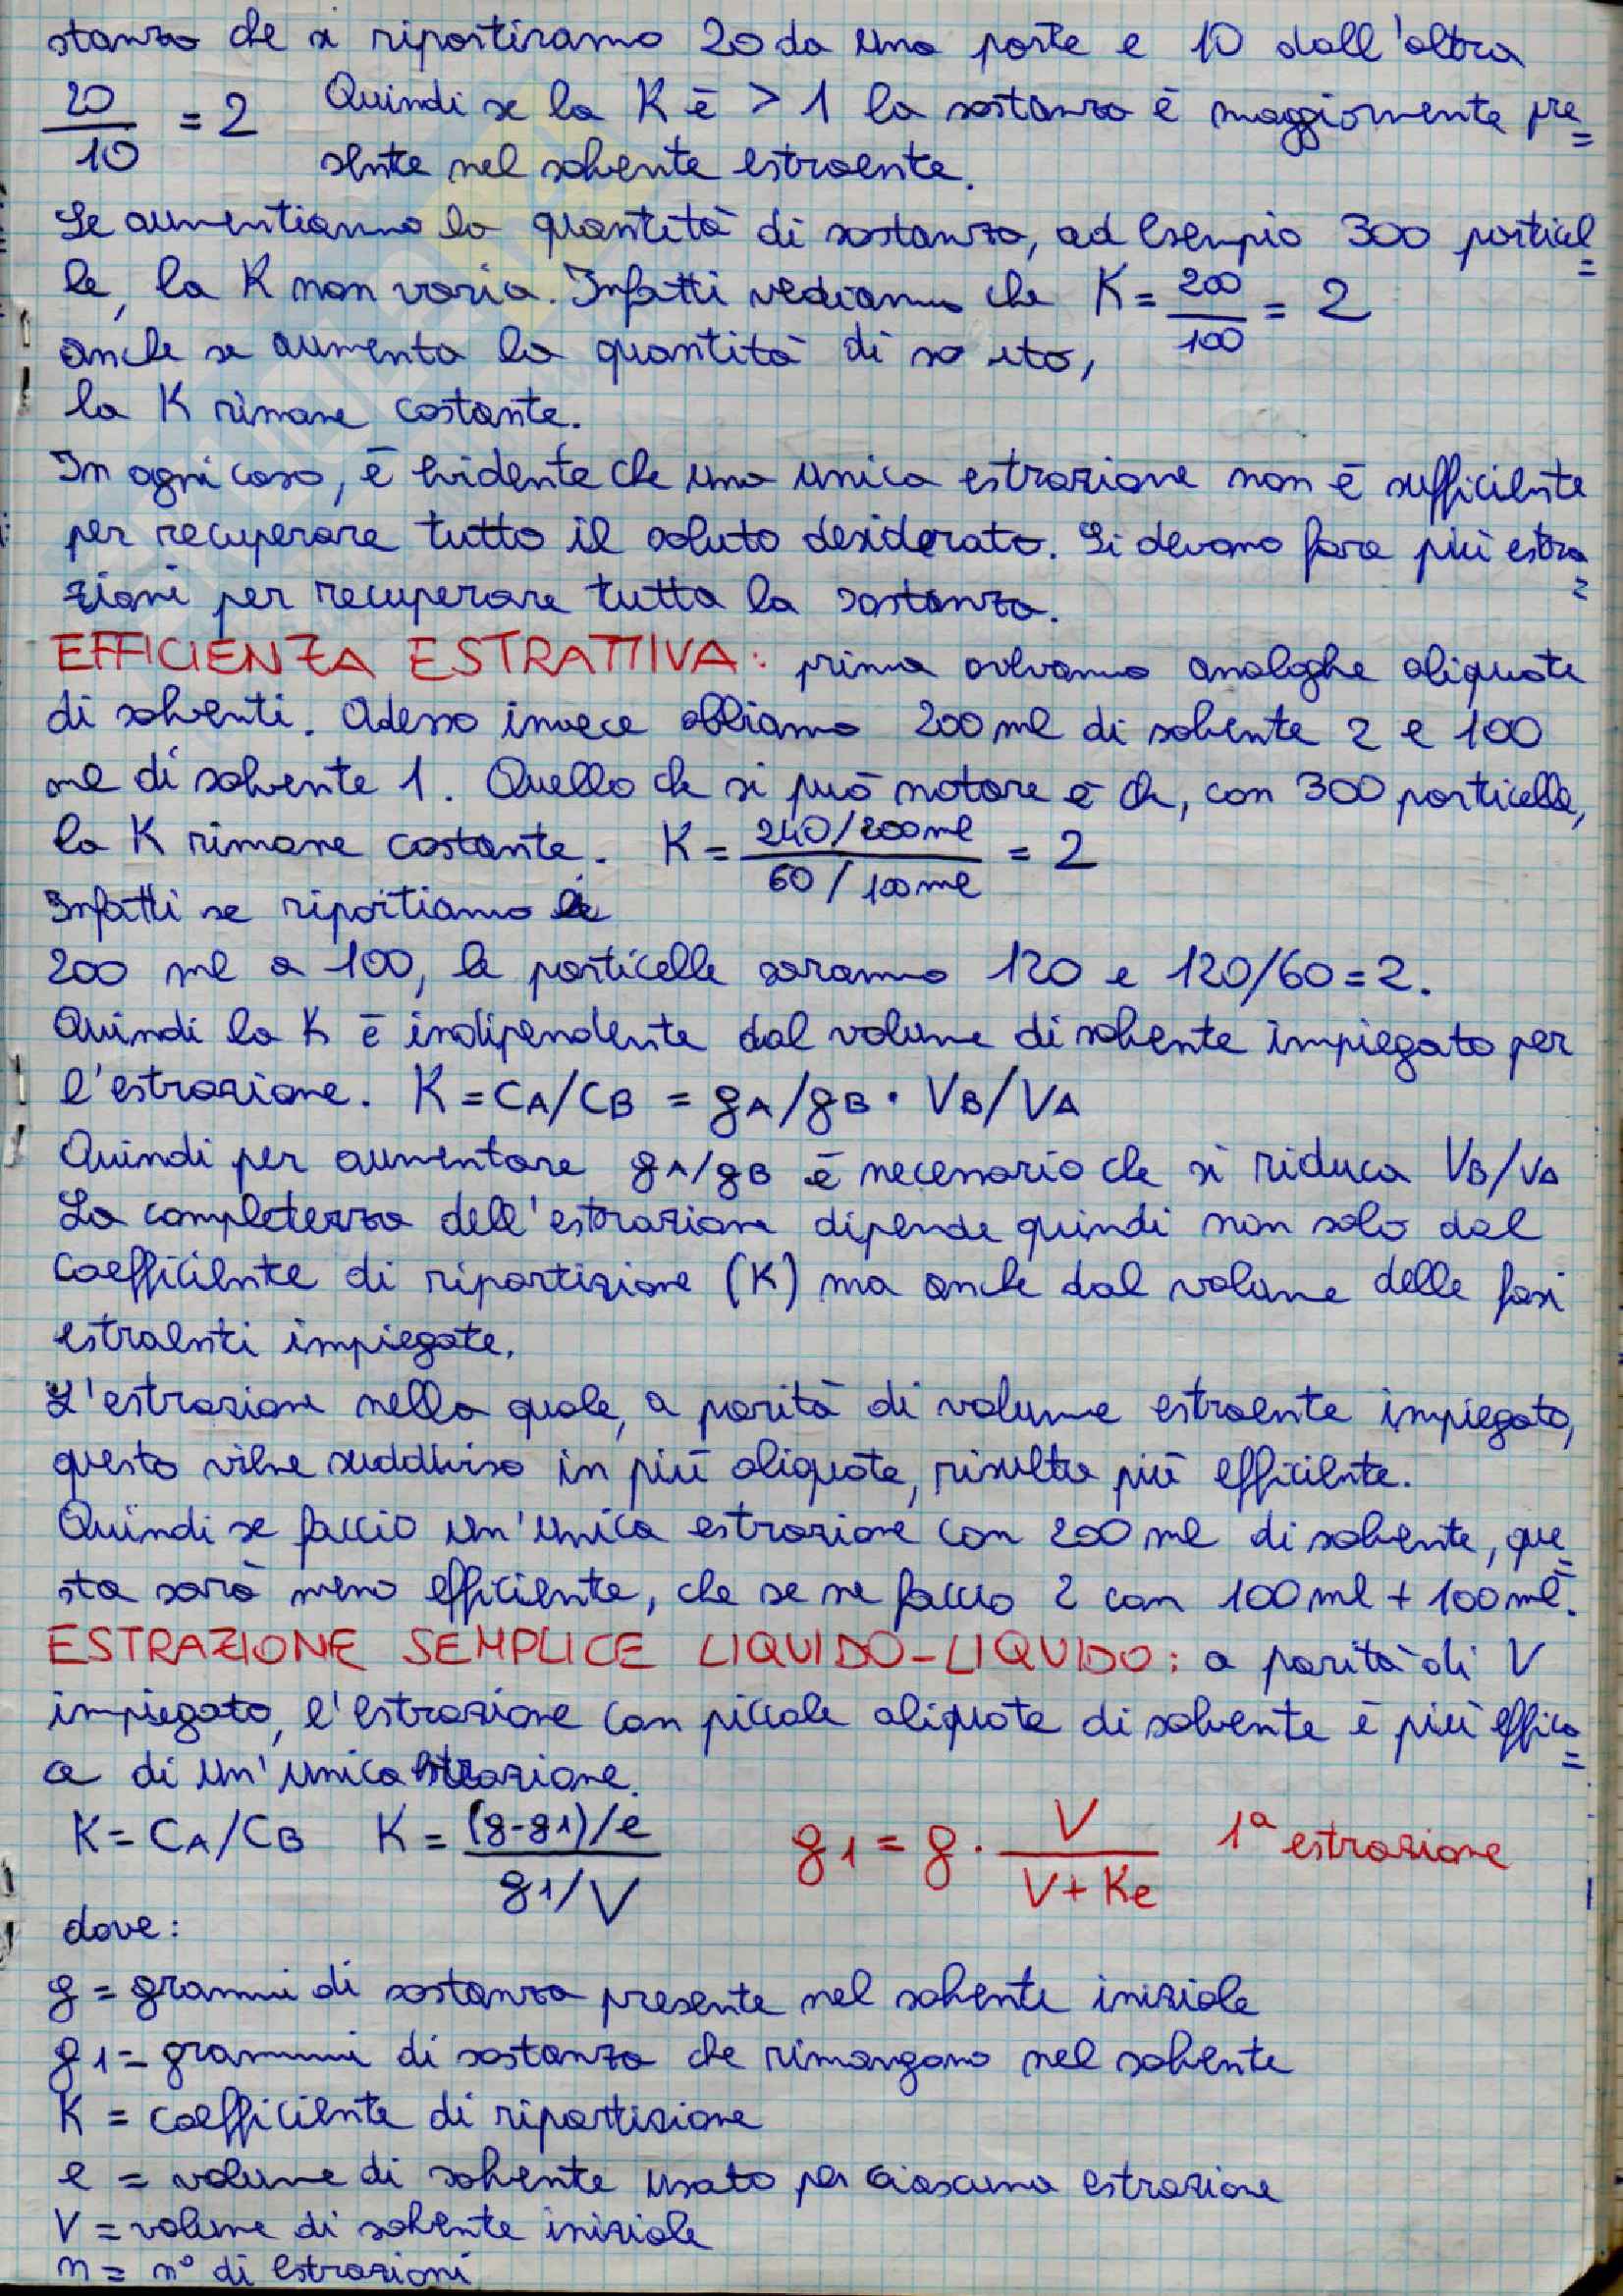 stanza che si ripartiranno 20 da una parte e 10 dall'altra
20/10 = 2 Quindi se la K è > 1 la sostanza è maggiormente pre=
sente nel solvente estraente.
Se aumentiamo la quantità di sostanza, ad esempio 300 particel=
le, la K non varia. Infatti vediamo che K = 200/100 = 2
anche se aumenta la quantità di so uto,
la K rimane costante.
In ogni caso, è evidente che una unica estrazione non è sufficiente
per recuperare tutto il soluto desiderato. Si devono fare più estra=
zioni per recuperare tutta la sostanza.
EFFICIENZA ESTRATTIVA: prima avevamo analoghe aliquote
di solventi. Adesso invece abbiamo 200 ml di solvente 2 e 100
ml di solvente 1. Quello che si può notare è che, con 300 particelle,
la K rimane costante. K = 240/200ml / 60/100ml = 2
Infatti se riportiamo
200 ml a 100, le particelle saranno 120 e 120/60=2.
Quindi la K è indipendente dal volume di solvente impiegato per
l'estrazione. K = CA/CB = gA/gB · VB/VA
Quindi per aumentare gA/gB è necessario che si riduca VB/VA
La completezza dell'estrazione dipende quindi non solo dal
coefficiente di ripartizione (K) ma anche dal volume delle fasi
estraenti impiegate.
L'estrazione nella quale, a parità di volume estraente impiegato,
questo viene suddiviso in più aliquote, risulta più efficiente.
Quindi se faccio un'unica estrazione con 200 ml di solvente, que=
sta sarà meno efficiente, che se ne faccio 2 con 100 ml + 100 ml.
ESTRAZIONE SEMPLICE LIQUIDO-LIQUIDO: a parità di V
impiegato, l'estrazione con piccole aliquote di solvente è più effica=
ce di un'unica estrazione.
K = CA/CB K = (g-g1)/e / g1/V g1 = g · V/V+Ke 1ª estrazione
dove:
g = grammi di sostanza presente nel solvente iniziale
g1 = grammi di sostanza che rimangono nel solvente
K = coefficiente di ripartizione
e = volume di solvente usato per ciascuna estrazione
V = volume di solvente iniziale
n = n° di estrazioni